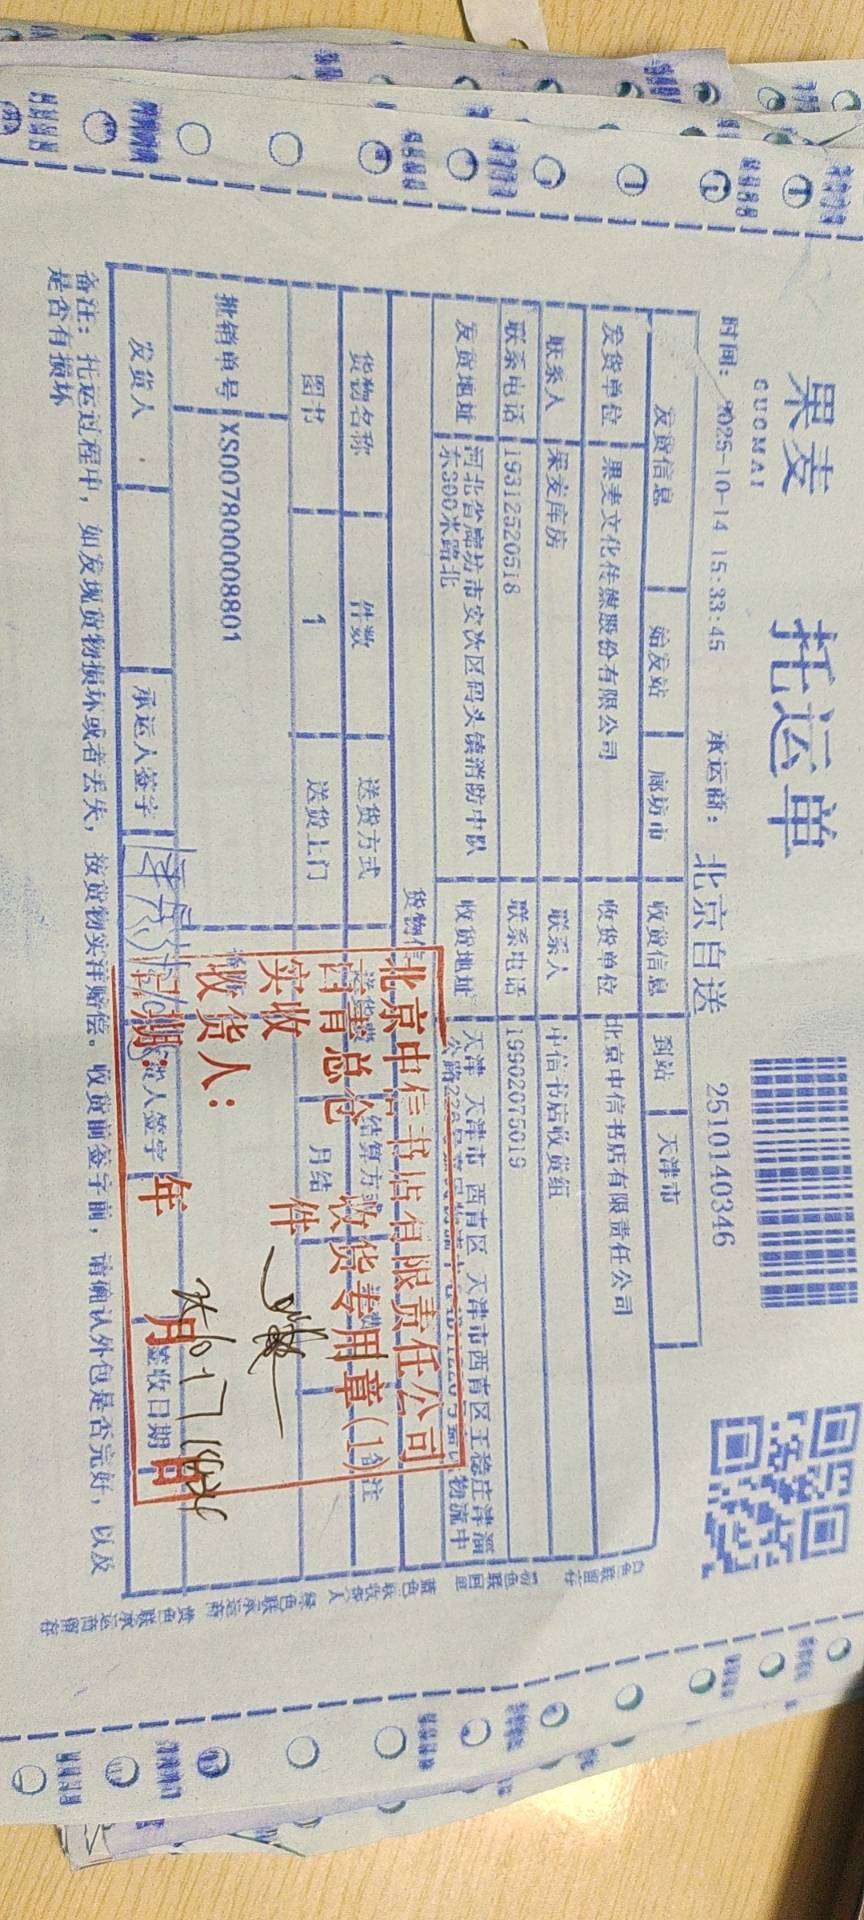 果麦
GUOMAI
托运单
时间: 2025-10-14 15:33:45 承运商: 北京自送 2510140346
发货信息 始发站 廊坊市 收货信息 到站 天津市
发货单位 果麦文化传媒股份有限公司 收货单位 北京中信书店有限责任公司
联系人 果麦库房 联系人 中信书店收货组
联系电话 19312520518 联系电话 19902075019
发货地址 河北省廊坊市安次区码头镇消防中队东300米路北 收货地址 天津 天津市 西青区 天津市西青区王稳庄津淄
货物信
货物名称 件数 送货方式 结算方 备注
图书 1 送货上门 月结
批销单号 XS007800008801
发货人 承运人签字 货人签字 签收日期
备注: 托运过程中, 如发现货物损坏或者丢失, 按货物实洋赔偿。收货前签字前, 请确认外包是否完好, 以及
是否有损坏
北京中信书店有限责任公司
西青总仓 收货专用章(1)
实收 件
收货人:
日期: 年 月 日
白色联留存
粉色联回单
蓝色联收货人
绿色联承运商
黄色联承运商留存